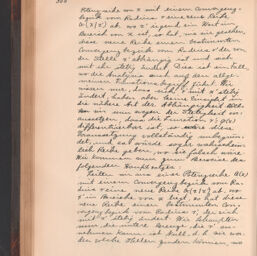 Potenzreihe von x mit einem Convergenz-
bezirk vom Radius r eine neue Reihe
ab. wo x' irgend ein Wert im
Bereich von x ist, so hat, wie wir gesehen,
diese neue Reihe einen bestimmten
Convergenzbezirk vom Radius r' der von
der Stelle x' abhängig ist und sich
mit ihr stetig ändert. Dies ist ein Fall,
wo die Analysis auch auf den allge-
meinen Functionsbegriff führt. Wir
wissen nur, dass sich r' mit x' stetig
ändert, haben aber keine Einsicht in
die nähere Art der Abhängigkeit. Woll-
ten wir nun wegen der Stetigkeit vor-
aussetzen, dass die Function
differentiierbar ist, so wäre diese
Voraussetzung vollständig unbegrün-
det, und es würde sogar wahrschein-
lich Reihe geben, wo sie falsch wäre.
Wir kommen nun zum Beweise des
folgenden Hauptsatzes:
Leiten wir aus einer Potenzreihe
mit einem Convergenzbezirk vom Ra-
dius r eine neue Reihe ab, wo
x' im Bereiche von x liegt, so hat diese
neue Reihe einen bestimmten Con-
vergenzbezirk vom Radius r', der sich
mit x' stetig ändert. Wir behaupten
nun, die untere Grenze, die r' an-
nehmen kann ist Null, d. h. es wer-
den solche Stellen gefunden werden, wo